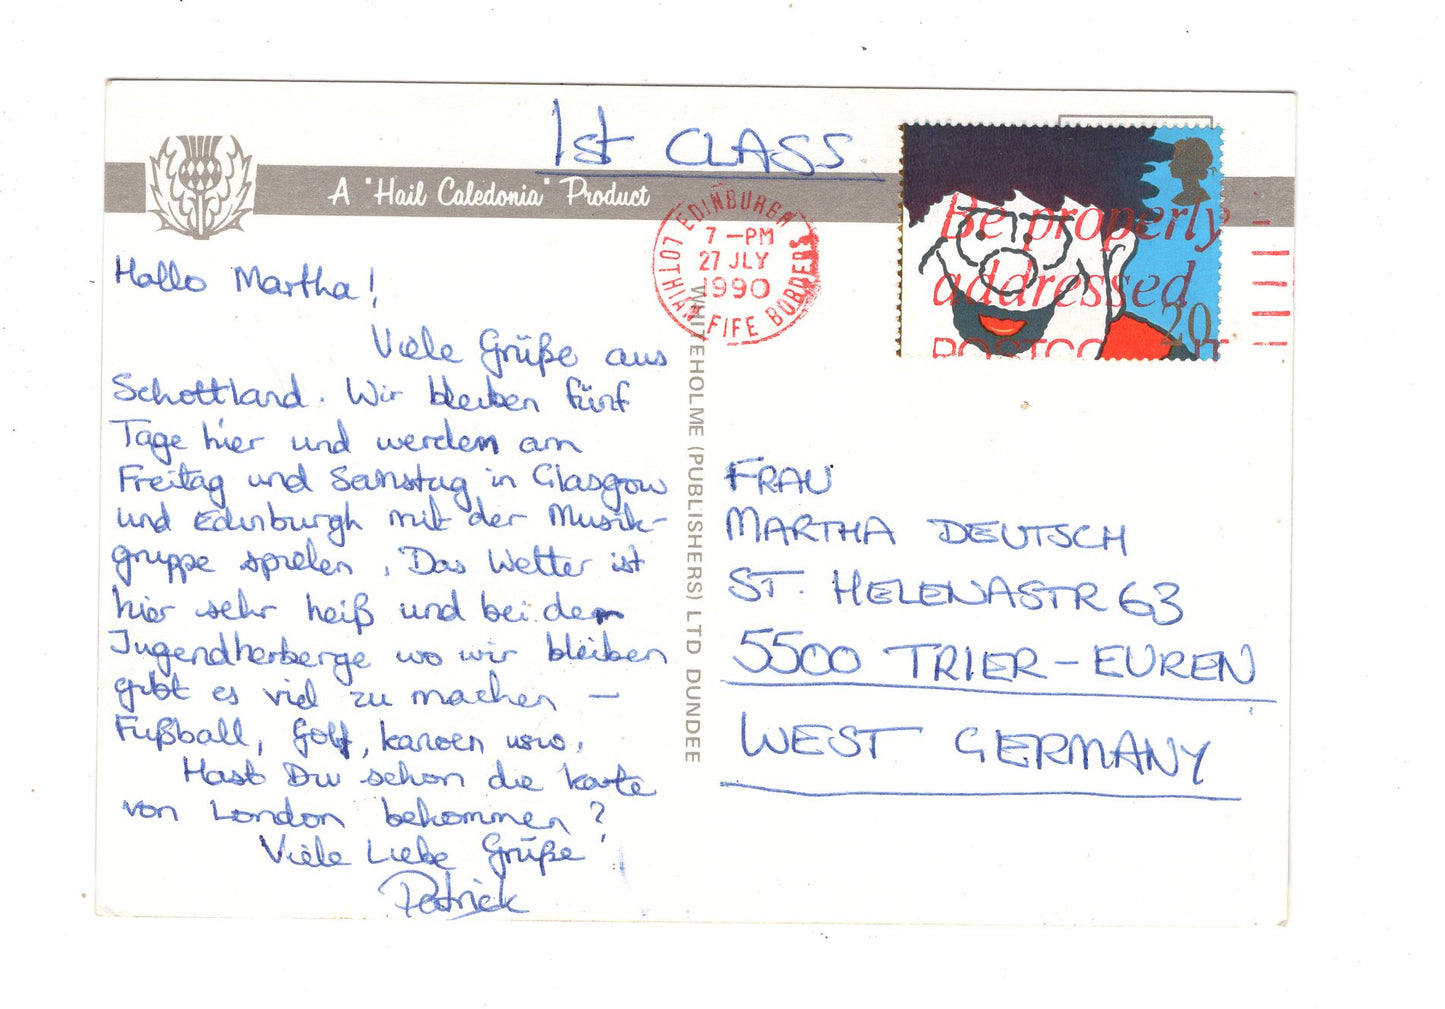 1st CLASS
A "Hail Caledonia" Product
EDINBURGH
7 -PM
27 JLY
1990
LOTHIAN FIFE BORDERS
Be properly
addressed
20
Hallo Martha!
Viele Grüße aus
Schottland. Wir bleiben fünf
Tage hier und werden am
Freitag und Samstag in Glasgow
und Edinburgh mit der Musik-
gruppe spielen. Das Wetter ist
hier sehr heiß und bei der
Jugendherberge wo wir bleiben
gibt es viel zu machen –
Fußball, Golf, kanoen usw.
Hast Du schon die Karte
von London bekommen?
Viele Liebe Grüße
Patrick
WHITEHOLME (PUBLISHERS) LTD DUNDEE
FRAU
MARTHA DEUTSCH
ST. HELENASTR 63
5500 TRIER - EUREN
WEST GERMANY